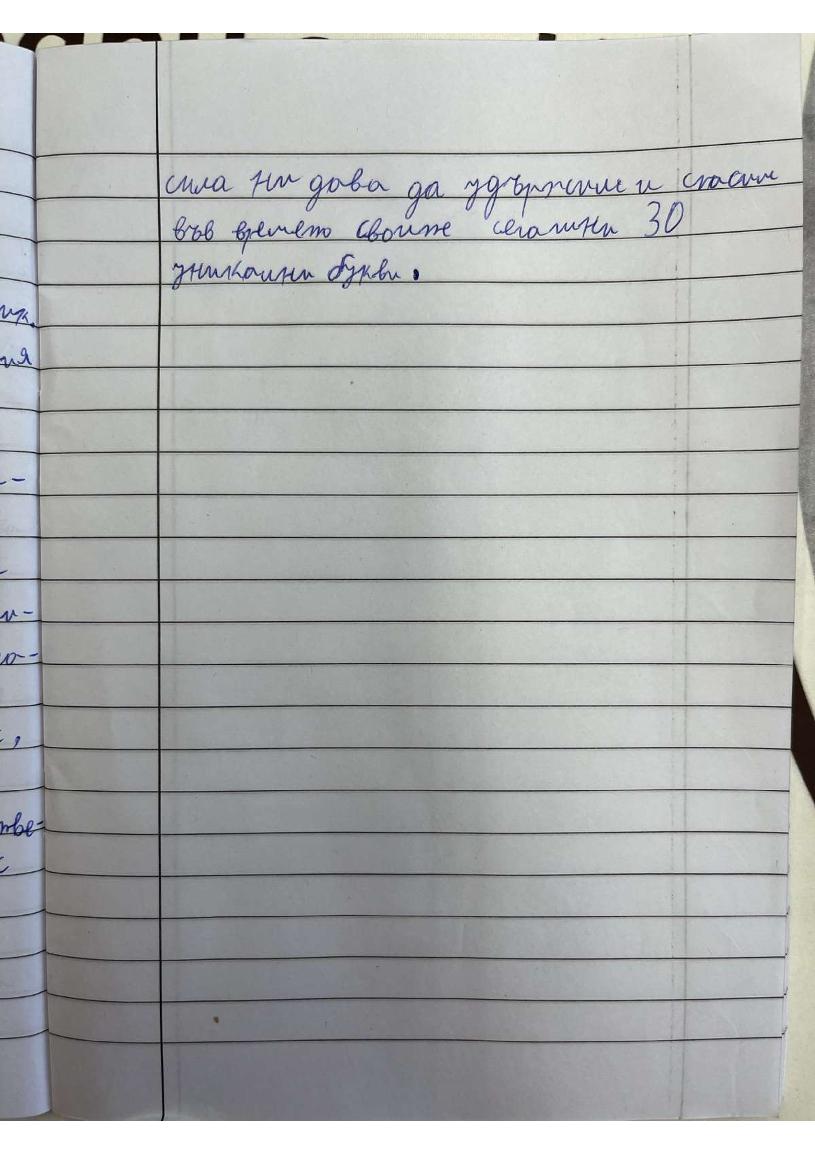 сила ни дава да удържим и спасим
във времето своите сегашни 30
уникални букви.